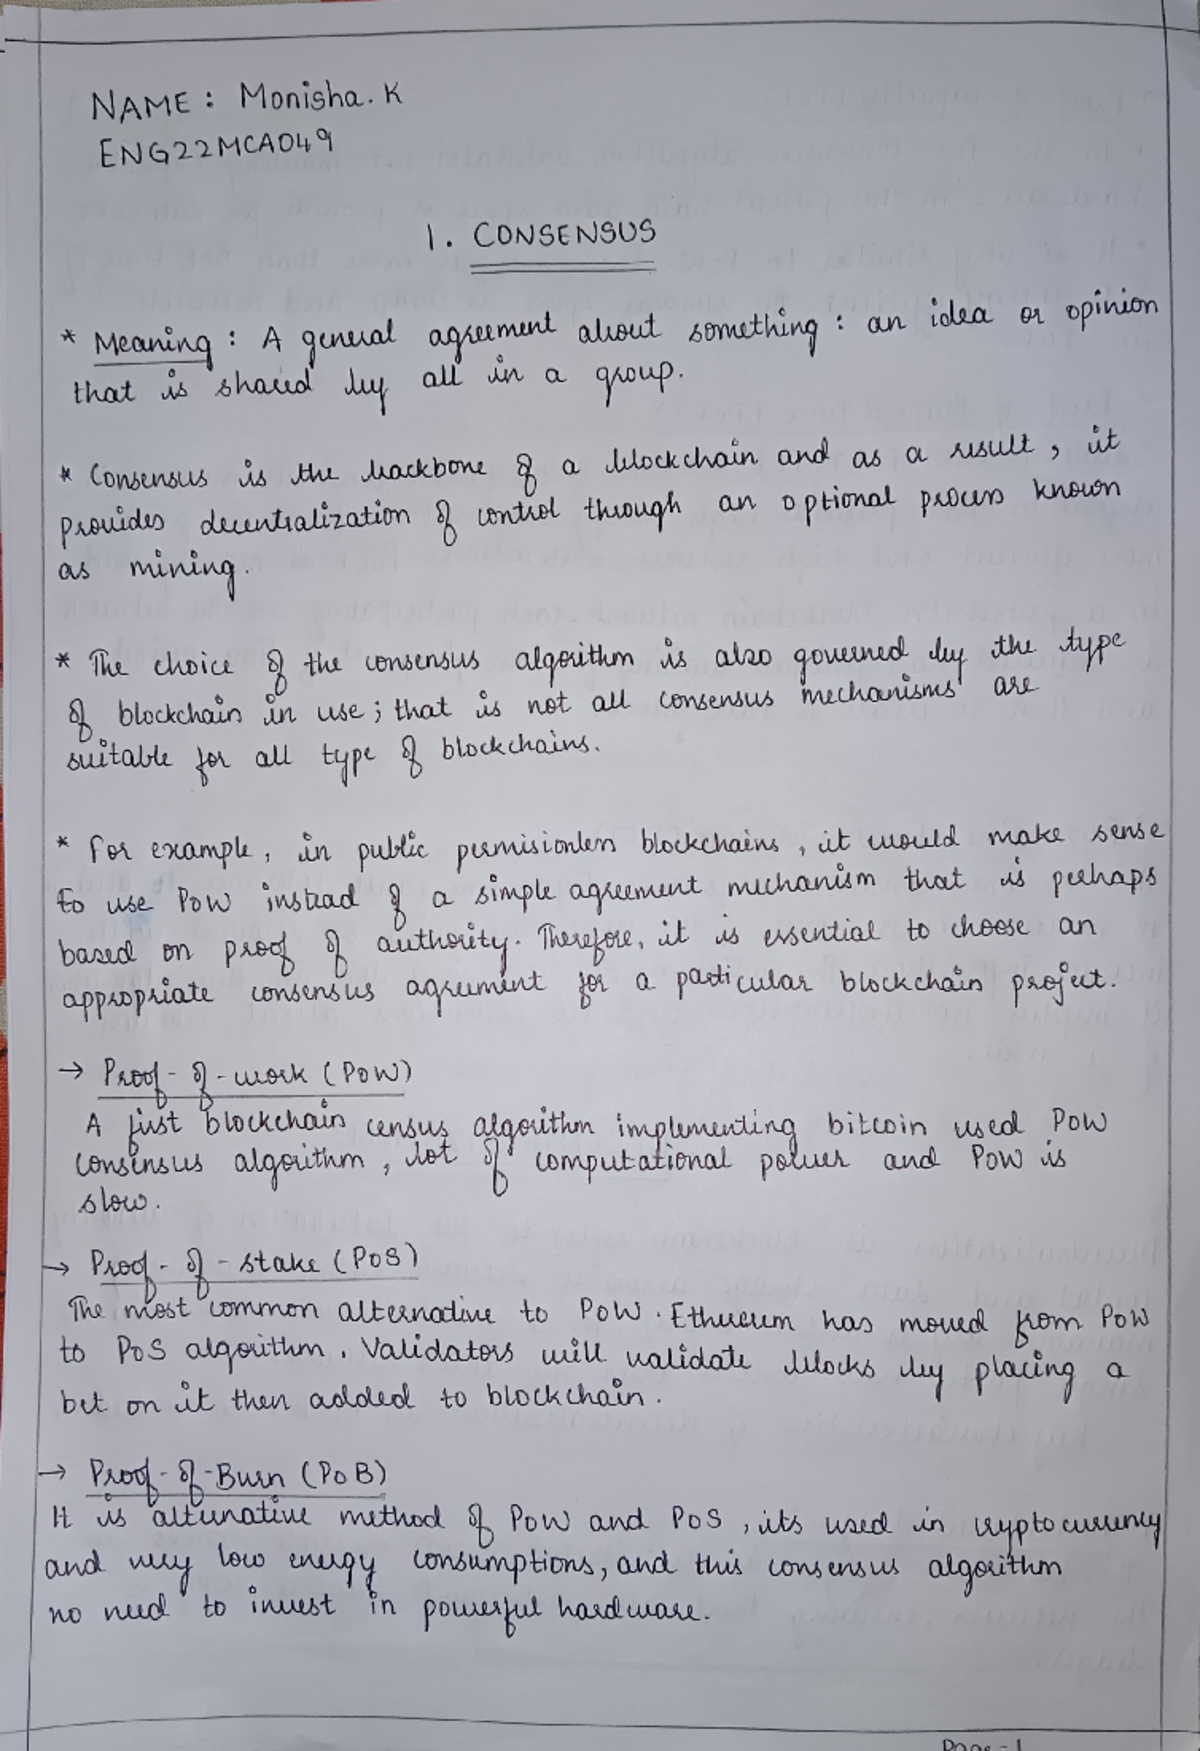 NAME: Monisha. K
ENG22MCA049
1. CONSENSUS
* Meaning: A general agreement about something: an idea or opinion
that is shared by all in a group.
* Consensus is the backbone of a blockchain and as a result, it
provides decentralization of control through an optional process known
as mining.
* The choice of the consensus algorithm is also governed by the type
of blockchain in use; that is not all consensus mechanisms are
suitable for all type of blockchains.
* For example, in public permisionless blockchains, it would make sense
to use PoW instead of a simple agreement mechanism that is perhaps
based on proof of authority. Therefore, it is essential to choose an
appropriate consensus agreement for a particular blockchain project.
→ Proof-of-work (PoW)
A first blockchain census algorithm implementing bitcoin used PoW
consensus algorithm, lot of computational power and PoW is
slow.
→ Proof-of-stake (PoS)
The most common alternative to PoW. Ethereum has moved from PoW
to PoS algorithm. Validators will validate blocks by placing a
bet on it then added to blockchain.
→ Proof-of-Burn (PoB)
It is alternative method of PoW and PoS, its used in cryptocurrency
and very low energy consumptions, and this consensus algorithm
no need to invest in powerful hardware.
Page-1